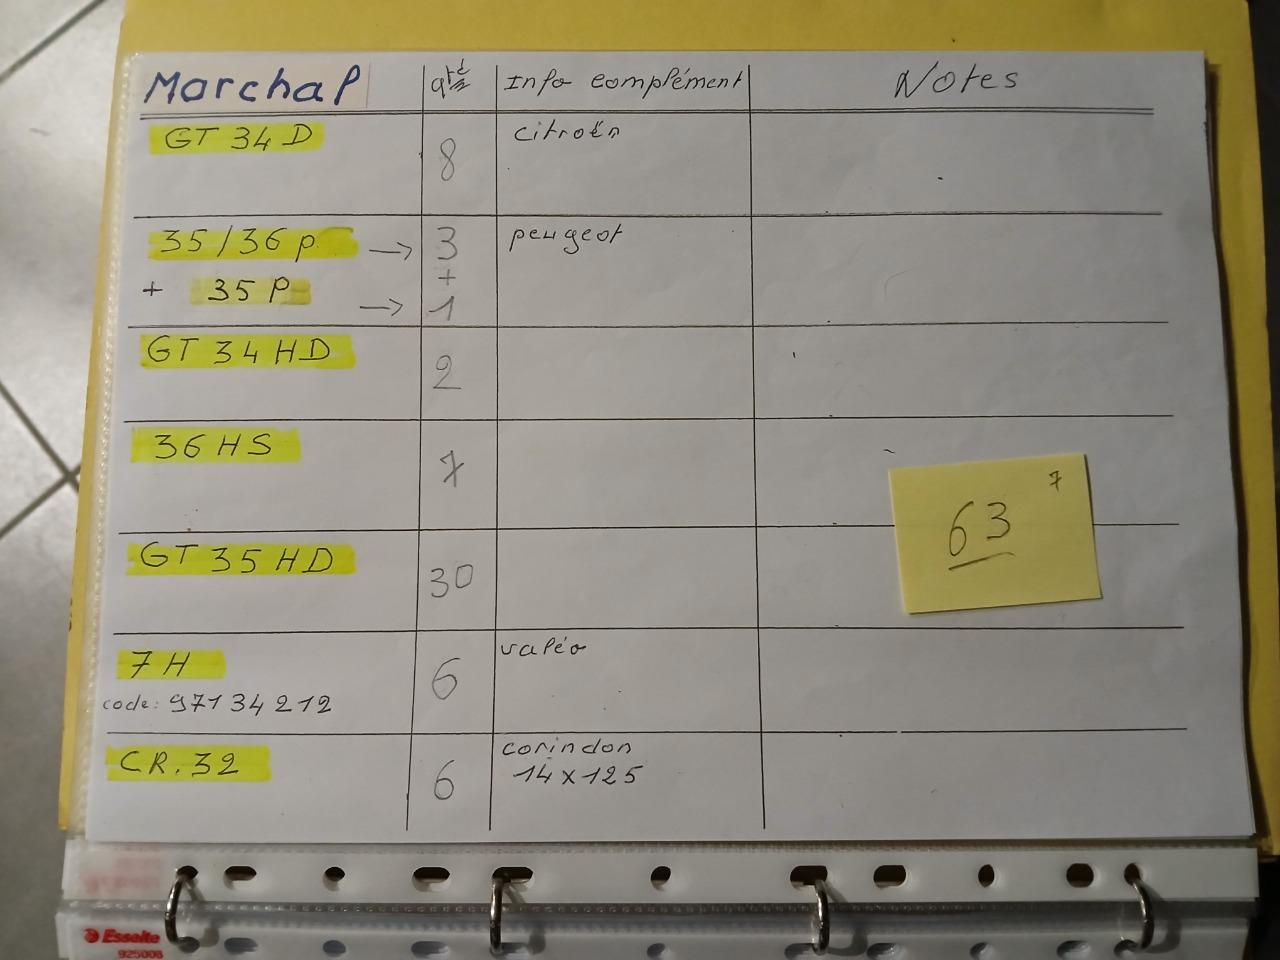 Marchal qté Info complément Notes
GT 34 D 8 citroën
35/36 p. → 3 peugeot
+
+ 35 P → 1
GT 34 HD 2
36 HS 7
7
63
GT 35 HD 30
7 H 6 valéo
code: 97134212
CR. 32 6 corindon
14 x 125
Esselte
925008